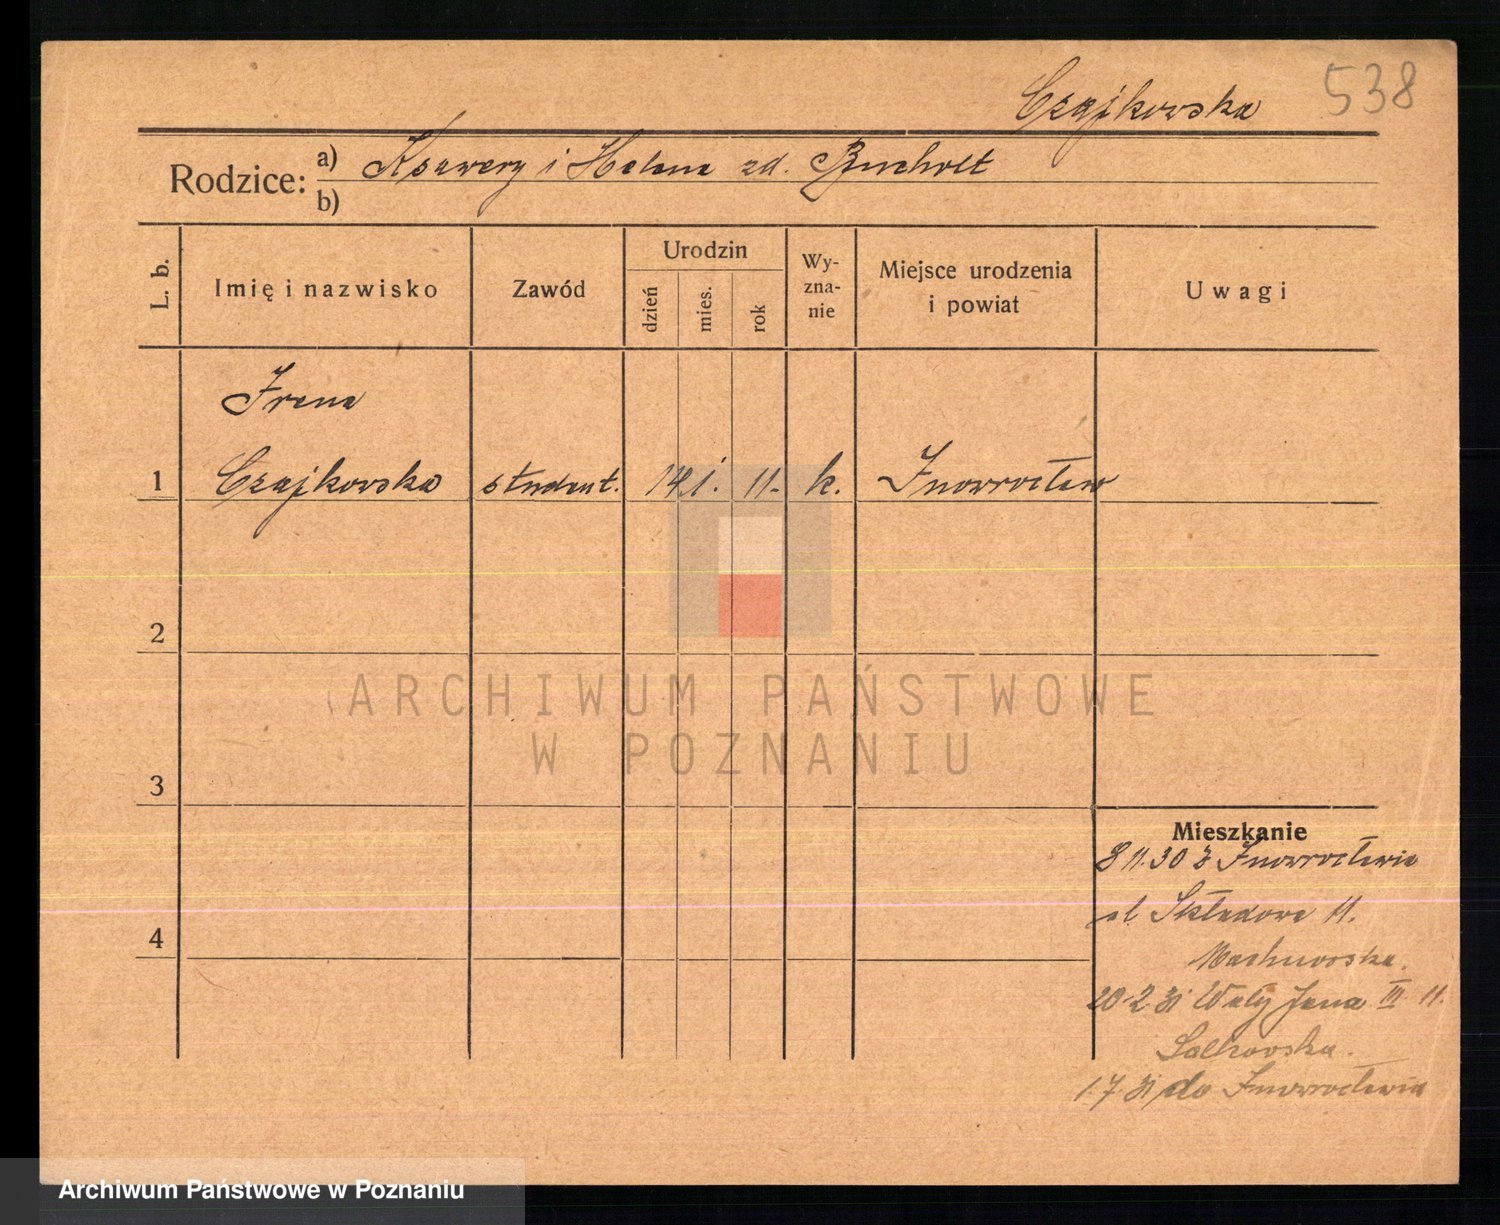 Czajkowska 538
Rodzice: a) Ksawery i Helena zd. Bucholt
b)
L. b. Imię i nazwisko Zawód Urodzin dzień mies. rok Wy-zna-nie Miejsce urodzenia i powiat Uwagi
Irena
1 Czajkowska student. 14 1. 11. k. Inowrocław
2
ARCHIWUM PAŃSTWOWE
W POZNANIU
3
Mieszkanie
8 11.30 z Inowrocławia
ul Składowa 11.
4
20-2 31 Wały Jana III 11.
1.7.31 do Inowrocławia
Archiwum Państwowe w Poznaniu